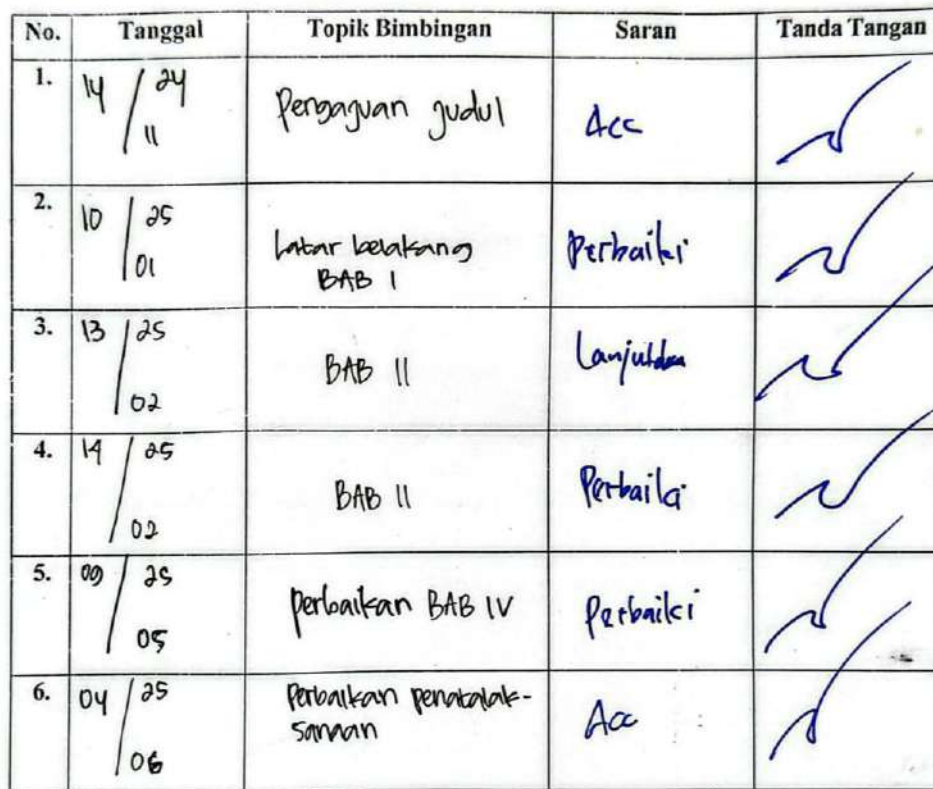 No. Tanggal Topik Bimbingan Saran Tanda Tangan
1. 14 / 24 11 Pengajuan judul Acc
2. 10 / 25 01 Latar belakang BAB I Perbaiki
3. 13 / 25 02 BAB II Lanjutkan
4. 14 / 25 02 BAB II Perbaiki
5. 09 / 25 05 Perbaikan BAB IV Perbaiki
6. 04 / 25 06 Perbaikan penatalak-
sanaan Acc